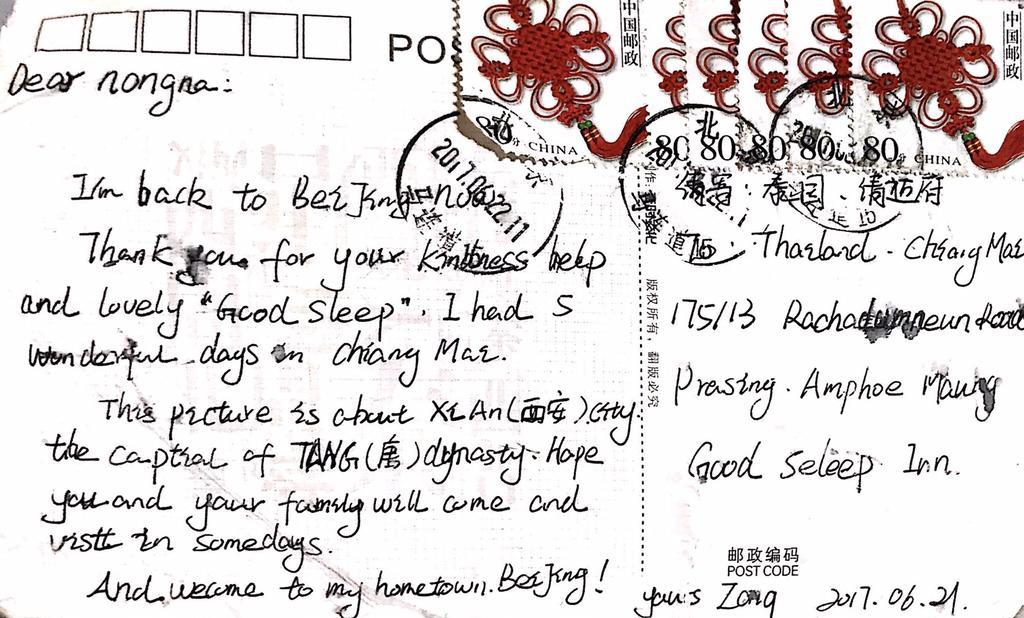 PO
中国邮政
中国邮政
80分 CHINA
80 80 80 80 80分 CHINA
2017.06.22.11
北
北
Dear nongna:
I'm back to BeiJing now
Thank you for your kindness help
and lovely "Good Sleep". I had 5
wonderful days in Chiang Mai.
This picture is about XiAn(西安)city
the captial of TANG(唐)dynasty. Hope
you and your family will come and
visit in somedays.
And welcome to my hometown. BeiJing!
版权所有，翻版必究
泰国
To: Thailand. Chiang Mai
175/13 Rachadamneun Road
Prasing. Amphoe Maung
Good Seleep Inn.
邮政编码
POST CODE
yours Zong 2017.06.21.